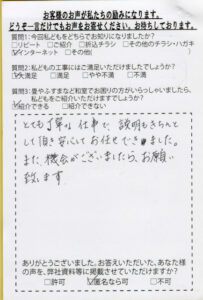 お客様のお声が私たちの励みになります。
どうぞ一言だけでもお声をお寄せください。お待ちしております。
質問1:今回私どもをどちらでお知りになりましたか?
□リピート □ご紹介 □折込チラシ □その他のチラシ・ハガキ
☑インターネット □その他(
質問2:私どもの工事にはご満足いただけましたでしょうか?
☑大満足 □満足 □やや不満 □不満
質問3:畳やふすまなど和室でお困りの方がいらっしゃいましたら、
私どもをご紹介いただけますでしょうか?
☑紹介できる □紹介できない
とても丁寧な仕事で、説明もきちんと
して頂き安心してお任せできました。
また、機会がございましたら、お願い
致します。
ありがとうございました。お答えいただいた、あなた様
の声を、弊社資料等に掲載させていただけますか?
□許可 ☑匿名なら可 □不可